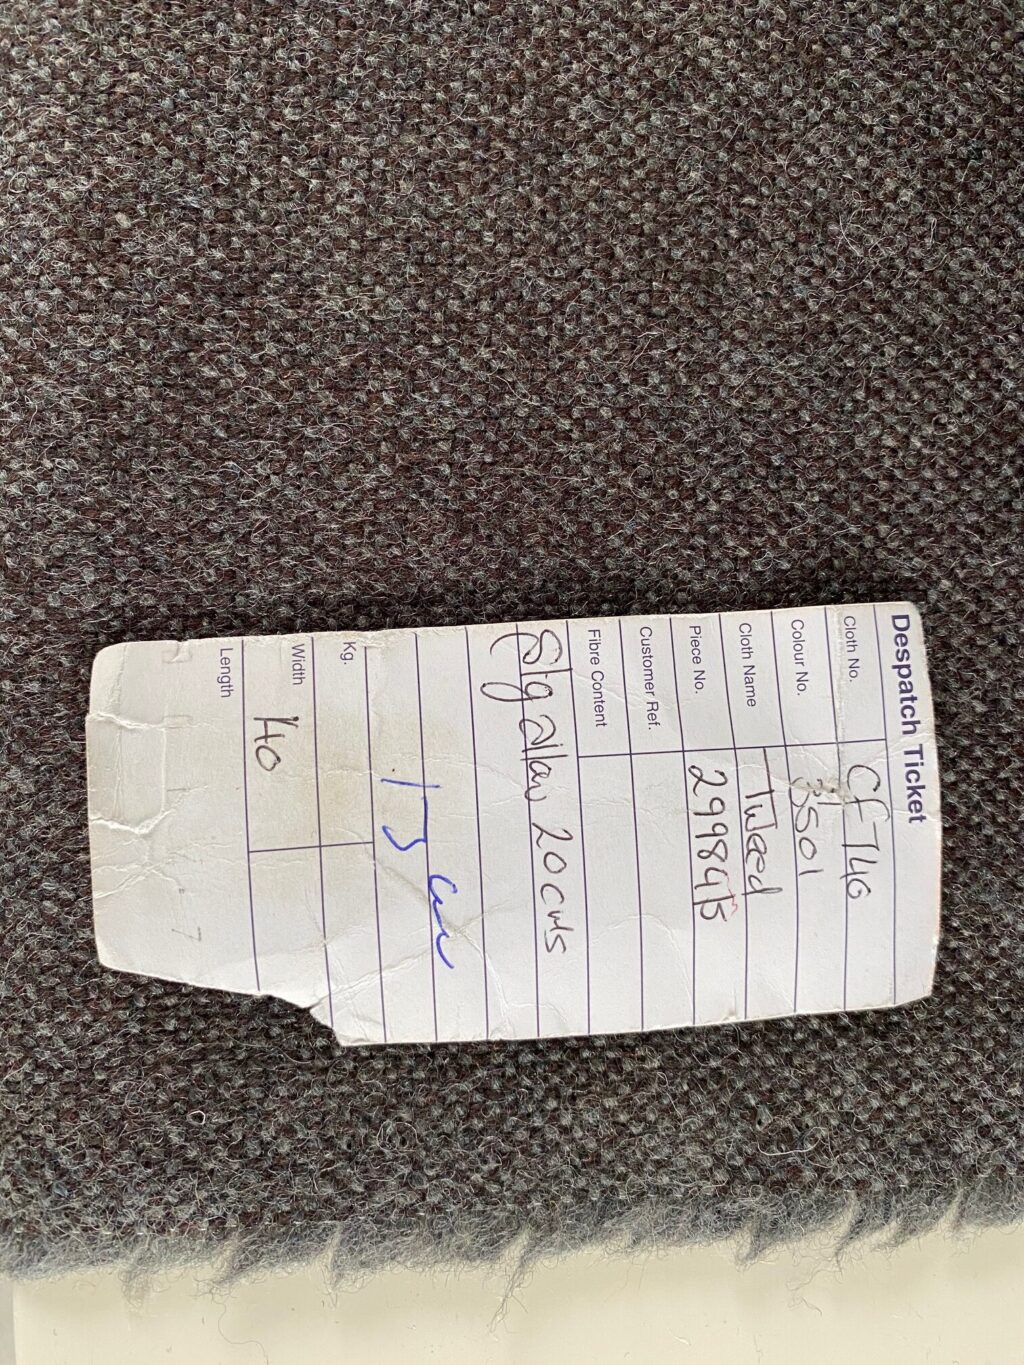 Despatch Ticket
Cloth No. CF746
Colour No. 3501
Cloth Name Tweed
Piece No. 2998415
Customer Ref.
Fibre Content
Slg allow 20cms
Kg.
Width
Length 40